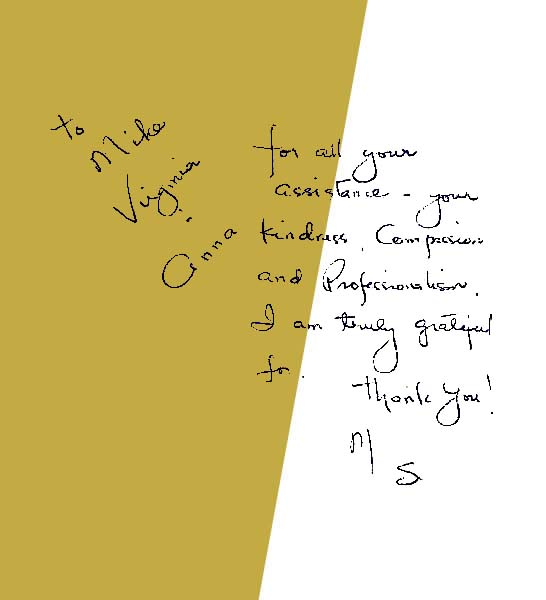 to
Mike
Virginia
Anna
for all your
assistance - your
kindness, Compassion
and Professionalism.
I am truly grateful
for.
Thank You!
M S